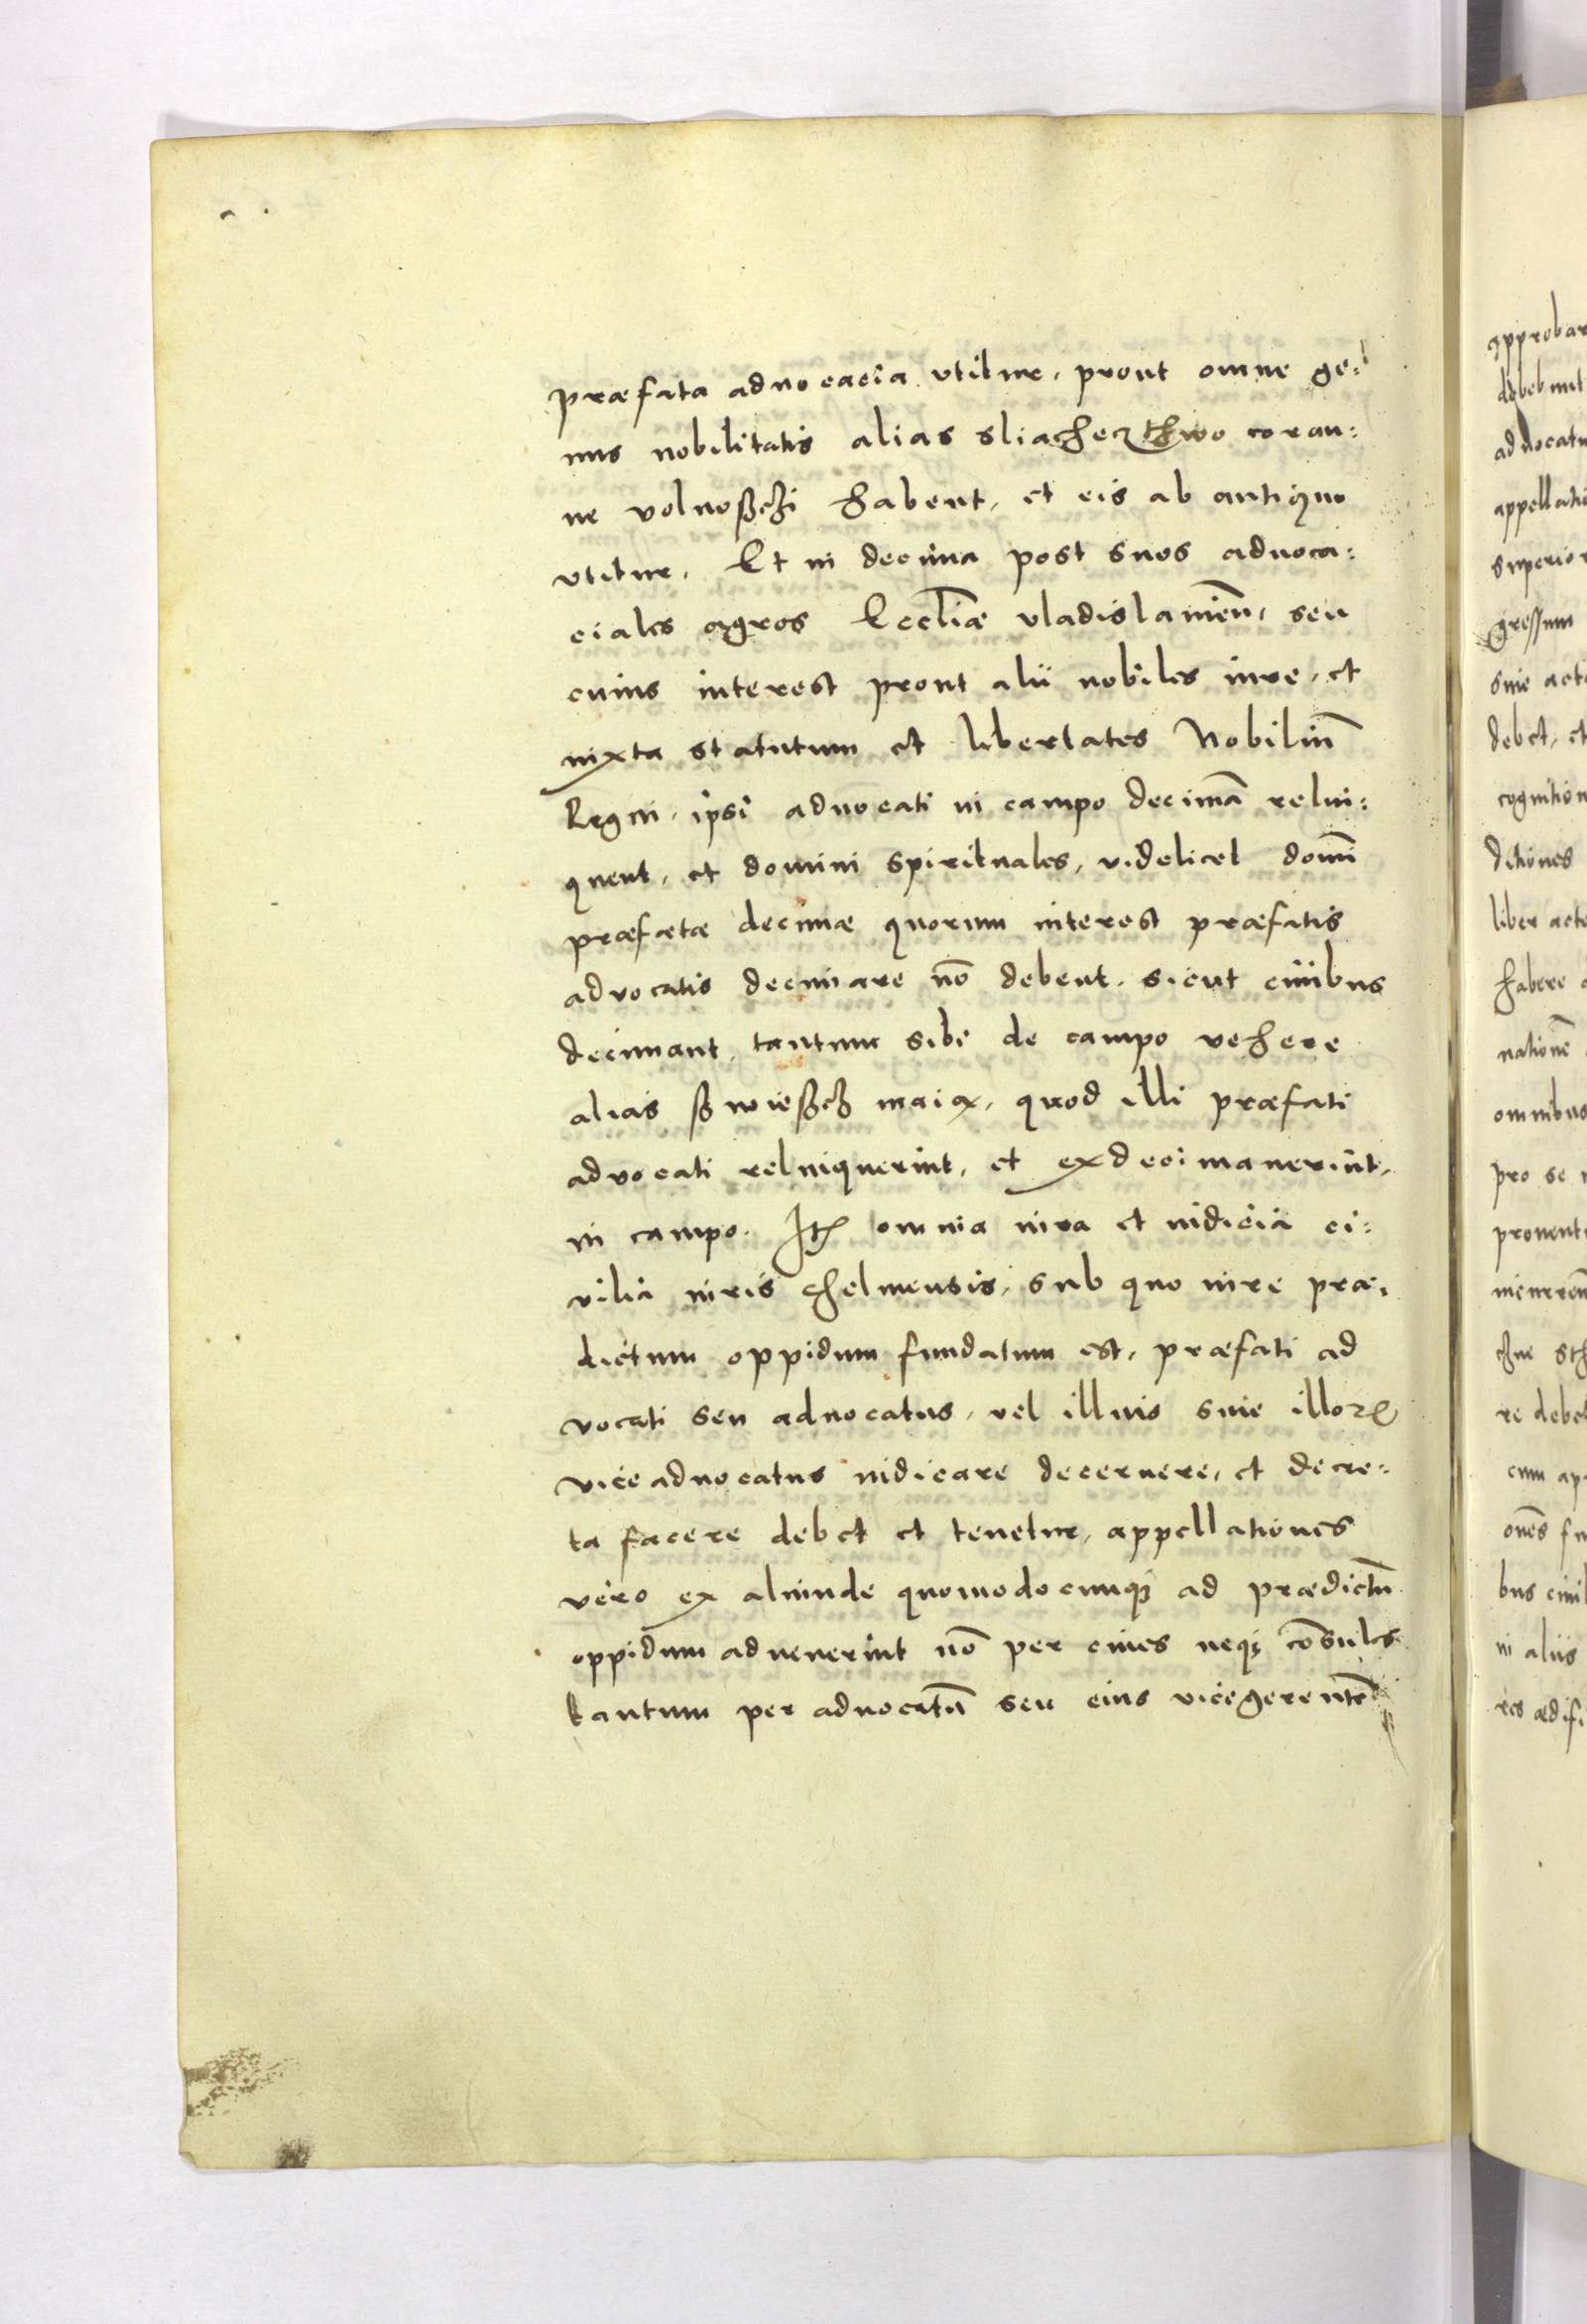 præfata aduocacia utitur, prout omne ge:
nus nobilitatis alias sliacherzthwo coran:
ne volnoßczi habent, et eis ab antiquo
vtitur. Et in decima post suos aduoca:
ciales agros Eccliæ vladislauien̄, seu
cuius interest prout alii nobiles iure, et
iuxta statutum et libertates Nobiliū
Regni, ipsi aduocati in campo decimā relin:
quent, et domini spirituales, videlicet domī
præfatæ decimæ quorum interest præfatis
advocatis decimare nō debent, sicut ciuibus
decimant, tantum sibi de campo vehere
alias ßwießcz maiα, quod illi præfati
advocati reliniquerint, et exdecimauerint,
in campo. Itē omnia iura et iudicia ci:
vilia iuris chelmensis, sub quo iure præ:
dictum oppidum fundatum est, præfati ad
vocati seu aduocatus, vel illius siue illorꝝ
viceaduocatus iudicare decernere, et decre:
ta facere debet et tenetur, appellationes
vero ex aliunde quomodocunqꝫ ad prædictū
oppidum aduenerint nō per ciues neqꝫ cōsules
tantum per aduocatū seu eius vicegerentē
approbar
debebunt
aduocatu
appellatio
superior
gressum
siue acta
debet, et
cognition
ditiones
liber acto
habere
nationē
omnibus
pro se
prouent
chne sth
re debet
cum ap
onēs fu
bus ciuil
in aliis
res ædifi